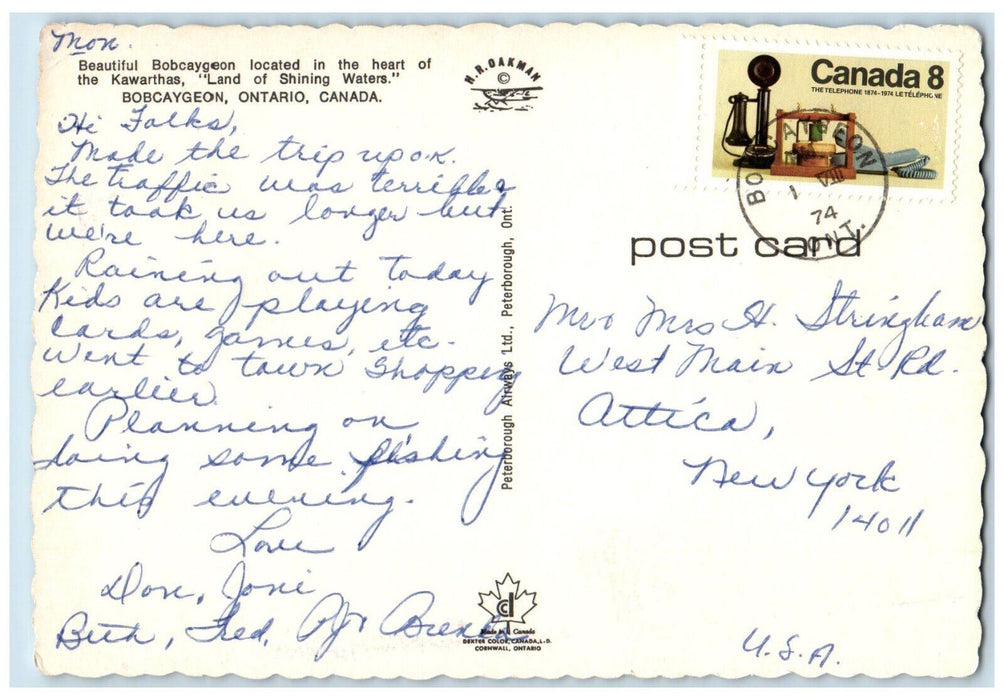 Mon.
Beautiful Bobcaygeon located in the heart of
the Kawarthas, "Land of Shining Waters."
BOBCAYGEON, ONTARIO, CANADA.
Hi Folks,
Made the trip up o.k.
The traffic was terrible
it took us longer but
we're here.
Raining out today
Kids are playing
cards, games, etc.
Went to town shopping
earlier.
Planning on
doing some fishing
this evening.
Love
Don, Joni
Beth, Fred, Brenda
H.R. OAKMAN
©
Peterborough Airways Ltd., Peterborough, Ont.
cd
Made in Canada
DEXTER COLOR, CANADA, L.D.
CORNWALL, ONTARIO
Canada 8
THE TELEPHONE 1874-1974 LE TÉLÉPHONE
BOBCAYGEON
1 VIII
74
ONT.
post card
Mr & Mrs H. Stringham
West Main St Rd.
Attica,
New York
14011
U.S.A.